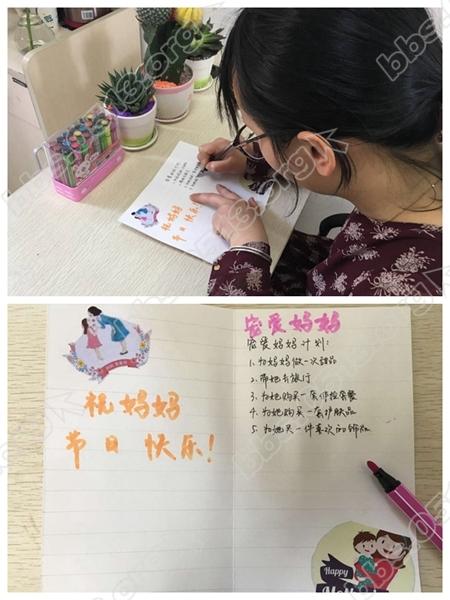 祝妈妈
节日快乐!
祝妈妈
节日 快乐!
宠爱妈妈
宠爱妈妈计划:
1. 为妈妈做一次甜品
2. 带她去旅行
3. 为她购买一套体检套餐
4. 为她购买一套护肤品
5. 为她买一件喜欢的饰品
Happy